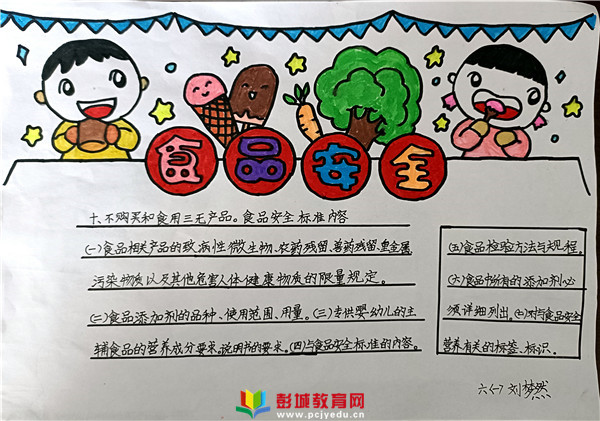 食品安全
十、不购买和食用三无产品。食品安全标准内容
(一)食品相关产品的致病性微生物、农药残留、兽药残留、重金属、
污染物质以及其他危害人体健康物质的限量规定。
(二)食品添加剂的品种、使用范围、用量。(三)专供婴幼儿的主
辅食品的营养成分要求。说明书的要求。(四)与食品安全标准的内容。
(五)食品检验方法与规程。
(六)食品中所有的添加剂必
须详细列出。(七)对与食品安全
营养有关的标签、标识。
六(一)刘梦然
彭城教育网
www.pcjyedu.cn